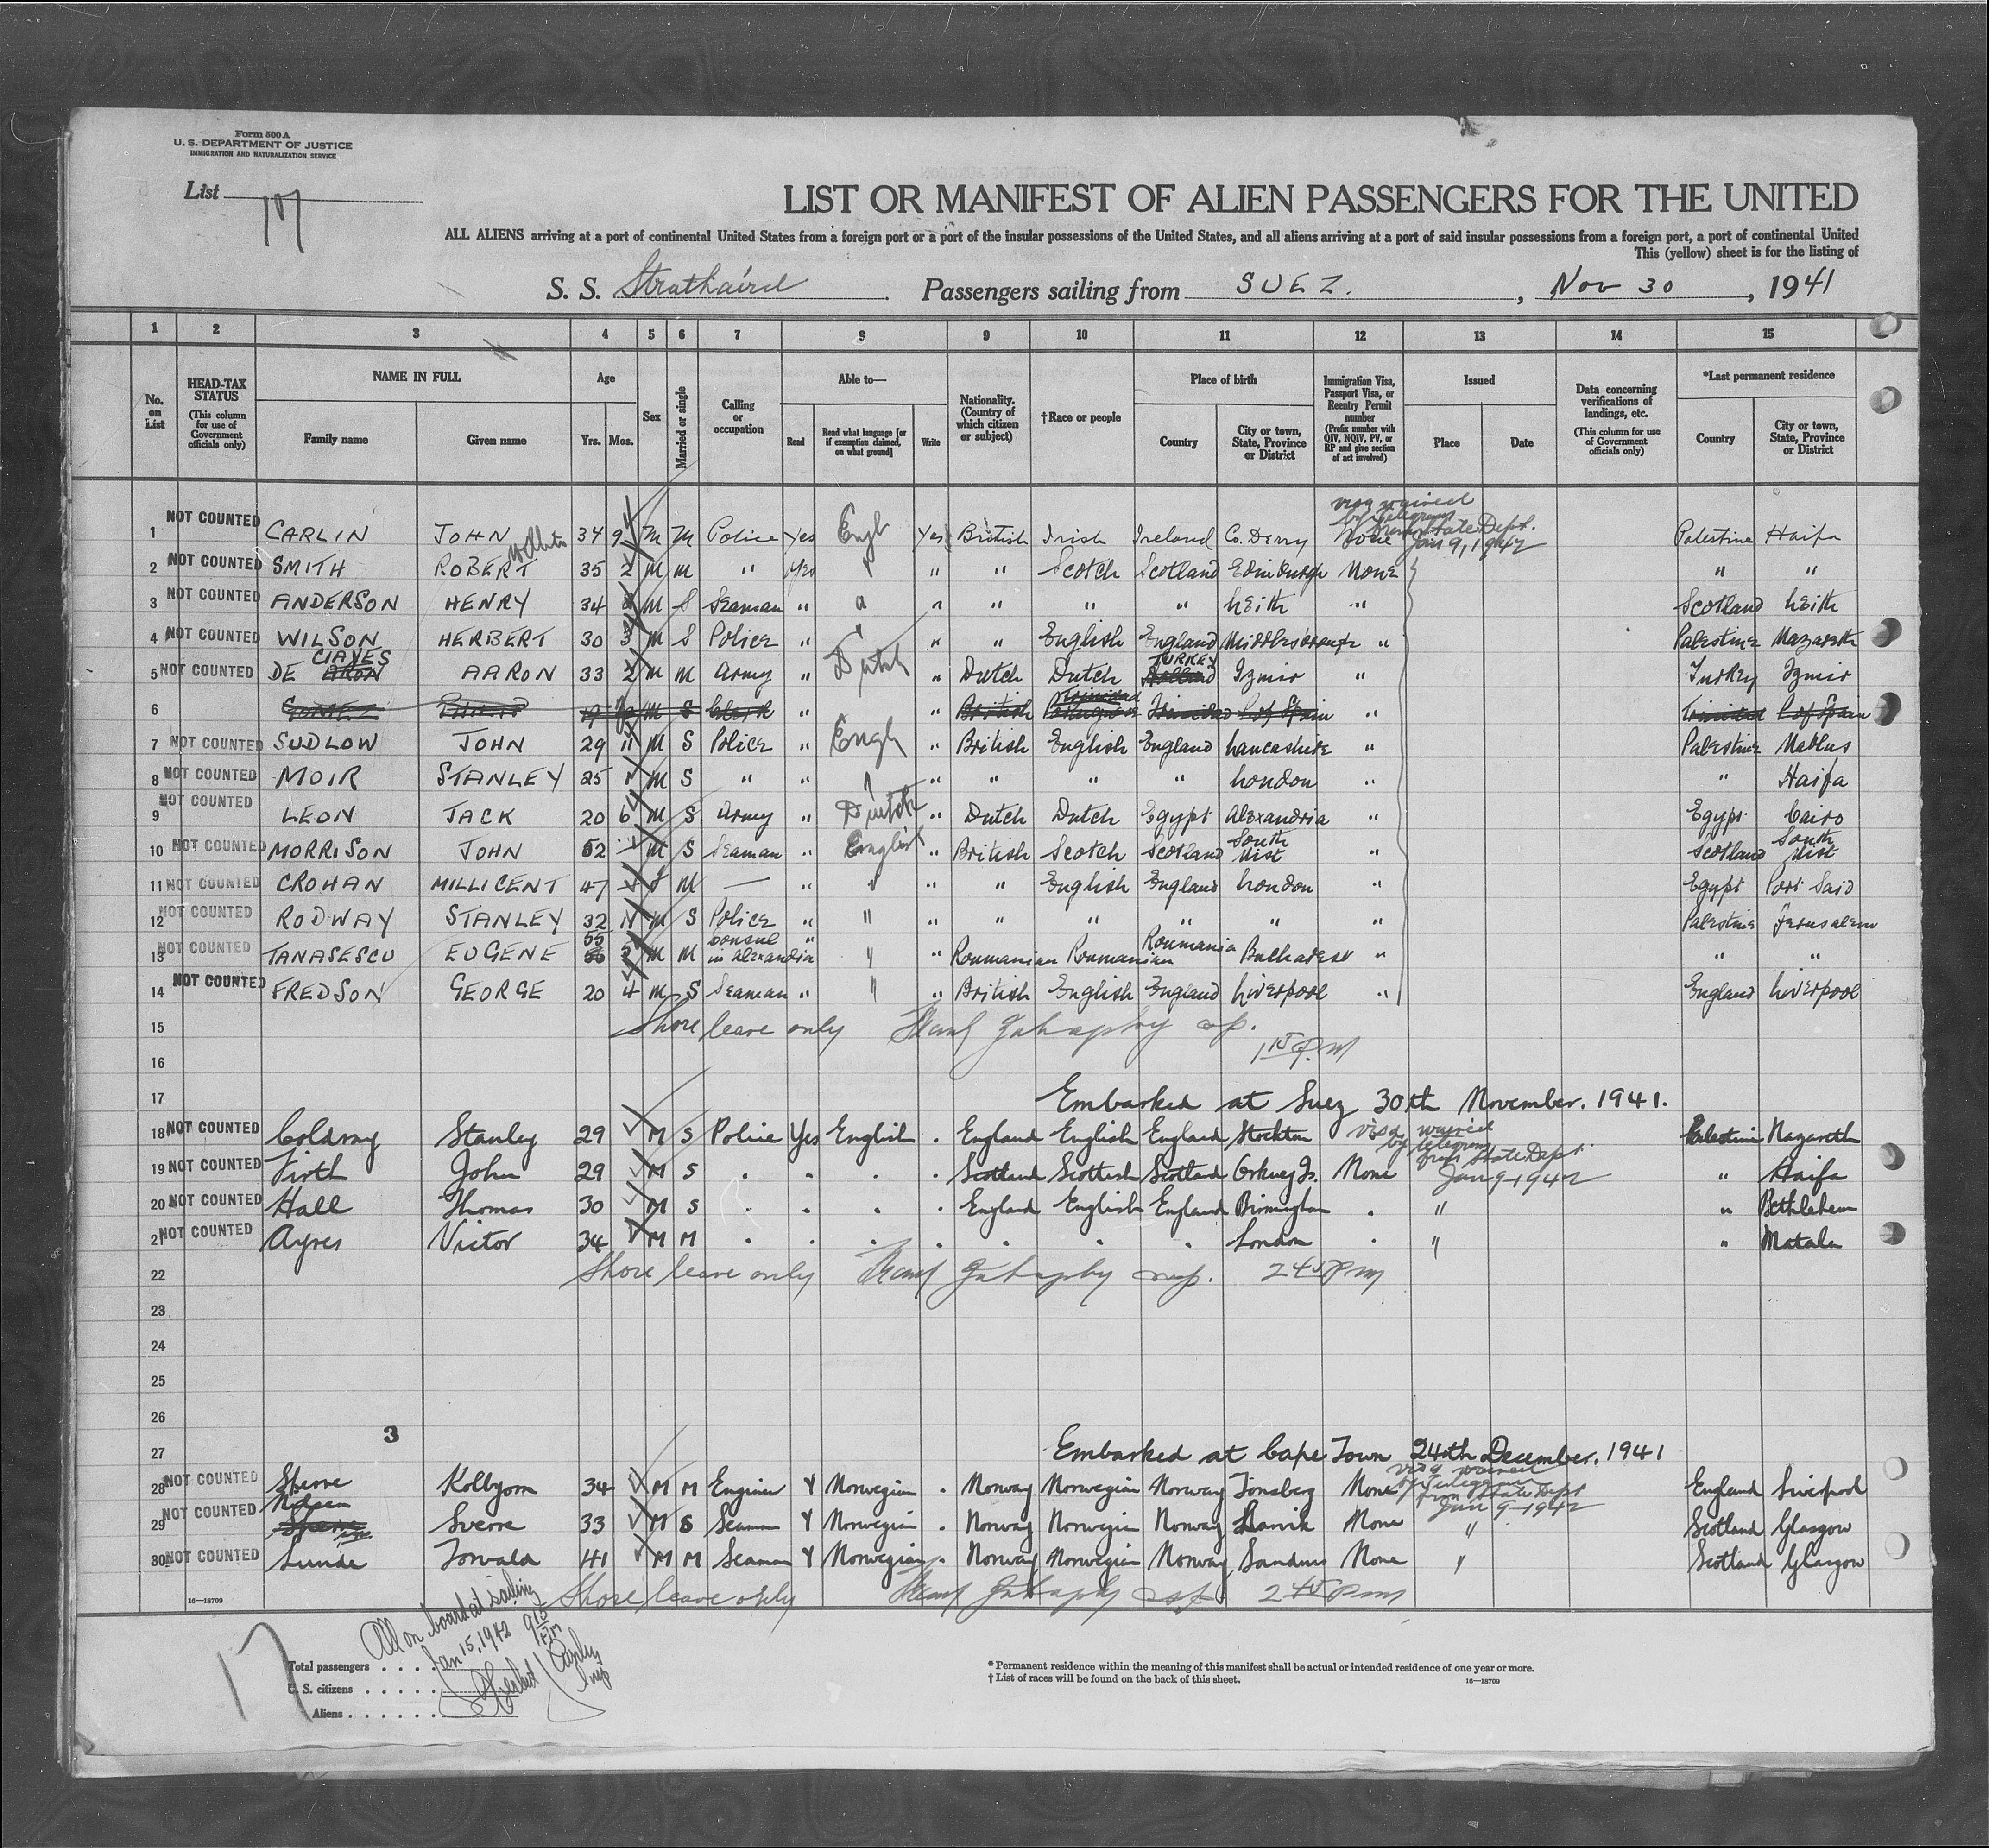 Form 500 A
U. S. DEPARTMENT OF JUSTICE
IMMIGRATION AND NATURALIZATION SERVICE
List
LIST OR MANIFEST OF ALIEN PASSENGERS FOR THE UNITED
ALL ALIENS arriving at a port of continental United States from a foreign port or a port of the insular possessions of the United States, and all aliens arriving at a port of said insular possessions from a foreign port, a port of continental United
This (yellow) sheet is for the listing of
S. S. Strathaird Passengers sailing from SUEZ. , Nov 30 , 1941
1 2 3 4 5 6 7 8 9 10 11 12 13 14 15
No. on List
HEAD-TAX STATUS (This column for use of Government officials only)
NAME IN FULL
Family name Given name
Age
Yrs. Mos.
Sex
Married or single
Calling or occupation
Able to—
Read Read what language [or if exemption claimed, on what ground] Write
Nationality. (Country of which citizen or subject)
†Race or people
Place of birth
Country City or town, State, Province or District
Immigration Visa, Passport Visa, or Reentry Permit number (Prefix number with QIV, NQIV, PV, or RP and give section of act involved)
Issued
Place Date
Data concerning verifications of landings, etc. (This column for use of Government officials only)
*Last permanent residence
Country City or town, State, Province or District
visa waived by telegram from State Dept. Jan 9, 1942
1 NOT COUNTED CARLIN JOHN 34 9 M M Police Yes Engl Yes British Irish Ireland Co. Derry None Palestine Haifa
2 NOT COUNTED SMITH ROBERT 35 2 M M " Yes " " Scotch Scotland Edinburgh None " "
3 NOT COUNTED ANDERSON HENRY 34 M S Seaman " " " " " " Leith " Scotland Leith
4 NOT COUNTED WILSON HERBERT 30 3 M S Police " " " " English England Middlesbrough " Palestine Nazareth
5 NOT COUNTED DE CIAVES AARON 33 2 M M Army " Dutch " Dutch Dutch TURKEY Izmir " Turkey Izmir
6 M S Clerk " " British Trinidad P of Spain " Trinidad P of Spain
7 NOT COUNTED SUDLOW JOHN 29 11 M S Police " Engl " British English England Lancashire " Palestine Nablus
8 NOT COUNTED MOIR STANLEY 25 M S " " " " " " " London " " Haifa
9 NOT COUNTED LEON JACK 20 6 M S Army " Dutch " Dutch Dutch Egypt Alexandria " Egypt Cairo
10 NOT COUNTED MORRISON JOHN 52 M S Seaman " English " British Scotch Scotland South Uist " Scotland South Uist
11 NOT COUNTED CROHAN MILLICENT 47 f M — " " " " English England London " Egypt Port Said
12 NOT COUNTED RODWAY STANLEY 32 11 M S Police " " " " " " " " Palestine Jerusalem
13 NOT COUNTED TANASESCU EUGENE 55 M M Consul in Alexandria " " " Roumanian Roumanian Roumania Bucharest " " "
14 NOT COUNTED FREDSON GEORGE 20 4 M S Seaman " " " British English England Liverpool " England Liverpool
15 Shore leave only
16 1 15 P.M
17 Embarked at Suez 30th November. 1941.
18 NOT COUNTED Coldray Stanley 29 M S Police Yes English . England English England Stockton visa waived by telegram from State Dept Jan 9-1942 Palestine Nazareth
19 NOT COUNTED Firth John 29 M S . . . . Scotland Scottish Scotland Orkney Is. None " Haifa
20 NOT COUNTED Hall Thomas 30 M S . . . . England English England Birmingham . " " Bethlehem
21 NOT COUNTED Ayres Victor 34 M M . . . . . . . London . " "
22 Shore leave only 2 45 P m
23
24
25
26
3
27 Embarked at Cape Town 24th December. 1941
visa waived by telegram from State Dept Jan 9-1942
28 NOT COUNTED Sverre Kolbjorn 34 M M Engineer Y Norwegian . Norway Norwegian Norway Tonsberg None England Liverpool
29 NOT COUNTED Sverre 33 M S Seaman Y Norwegian . Norway Norwegian Norway Larvik None " Scotland Glasgow
30 NOT COUNTED Lunde Torvald 41 M M Seaman Y Norwegian . Norway Norwegian Norway None " Scotland Glasgow
16—18709
Shore leave only 2 45 P m
17
All on board at sailing
Jan 15, 1942 9 15 P.M
Total passengers . . . .
U. S. citizens . . . . .
Aliens . . . . . .
* Permanent residence within the meaning of this manifest shall be actual or intended residence of one year or more.
† List of races will be found on the back of this sheet.
16—18709